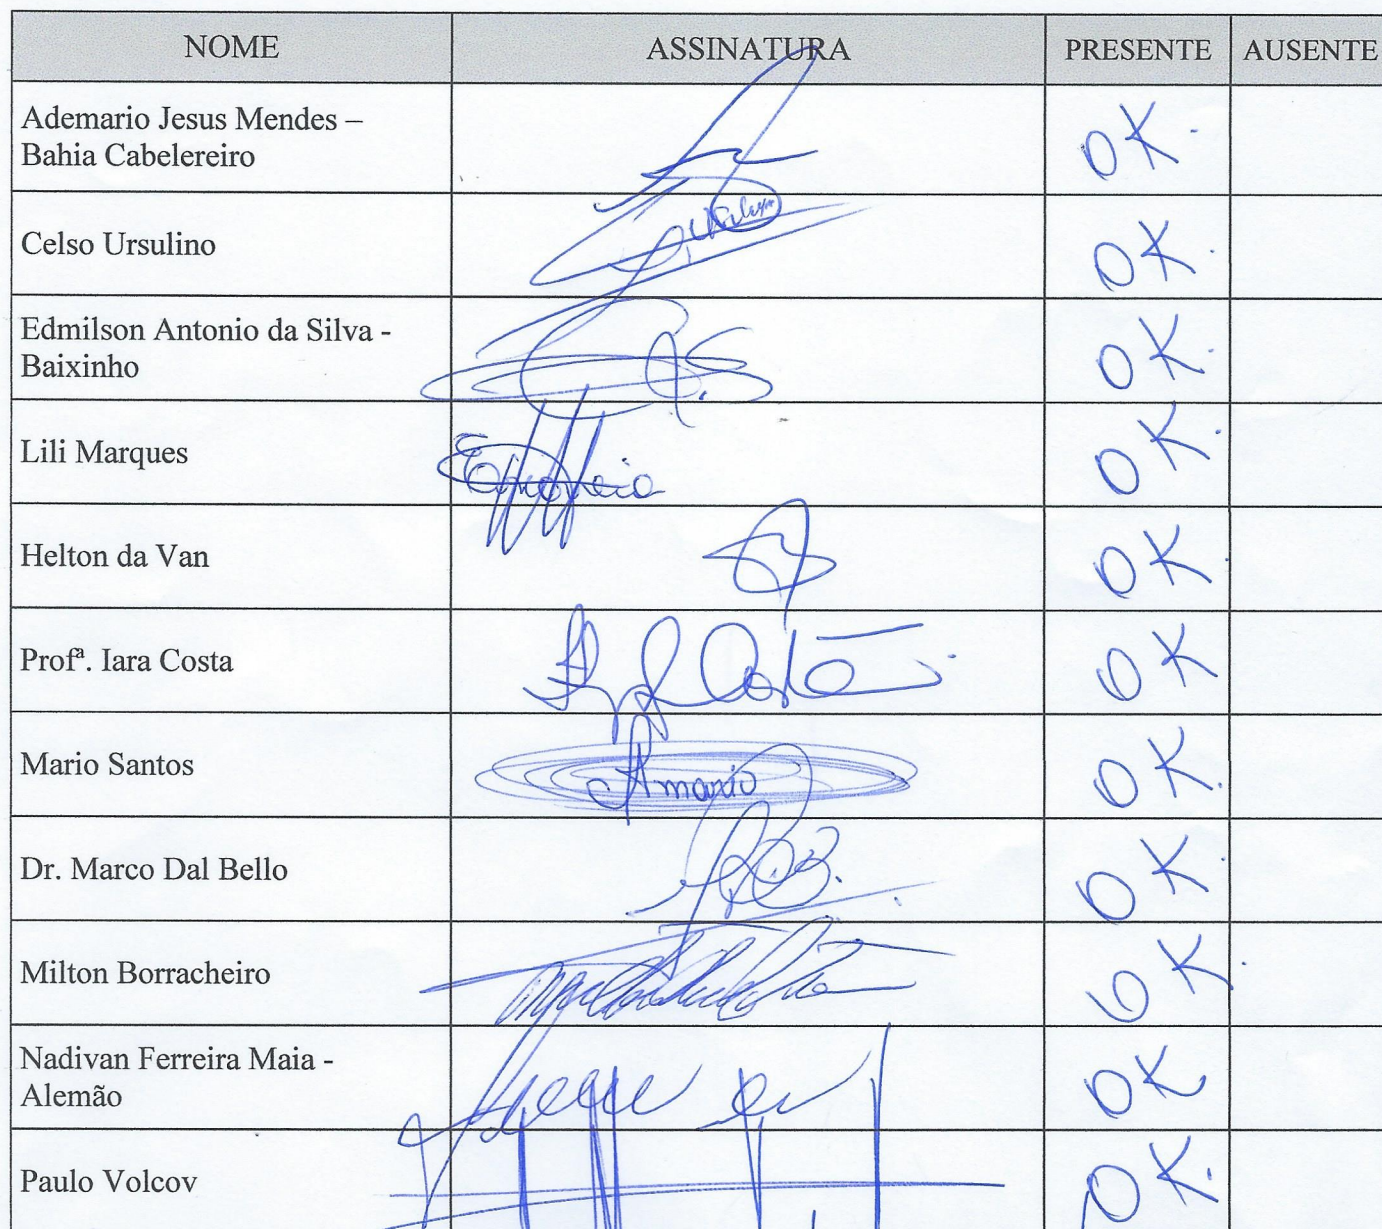 NOME ASSINATURA PRESENTE AUSENTE
Ademario Jesus Mendes –
Bahia Cabelereiro
OK.
Celso Ursulino
OK.
Edmilson Antonio da Silva -
Baixinho
OK.
Lili Marques
OK.
Helton da Van
OK.
Profª. Iara Costa
OK
Mario Santos
Amario
OK.
Dr. Marco Dal Bello
OK.
Milton Borracheiro
OK.
Nadivan Ferreira Maia -
Alemão
OK
Paulo Volcov
OK.